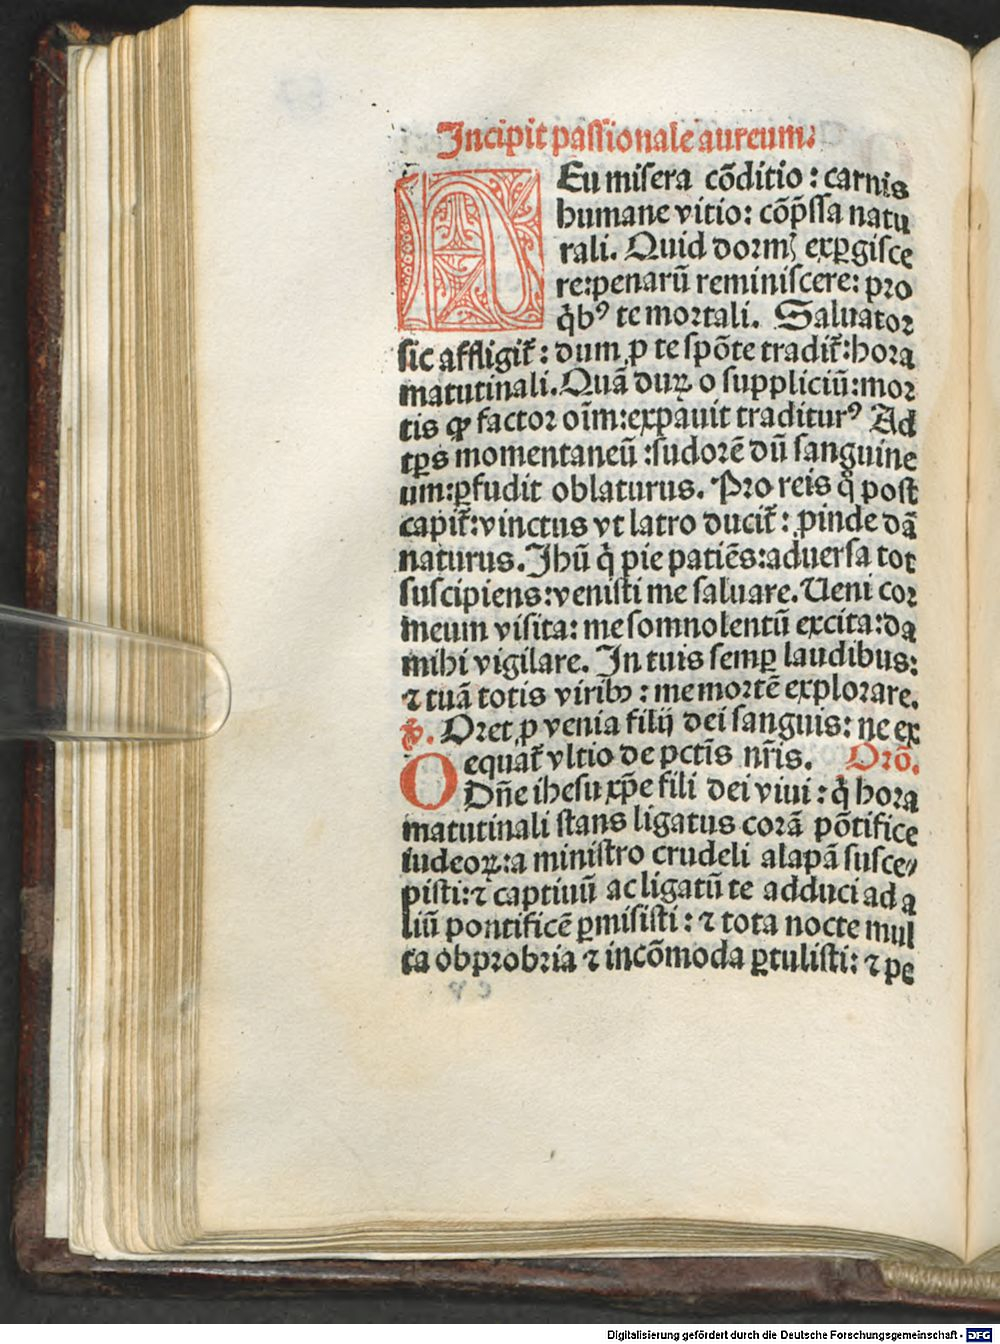 Incipit passionale aureum.
HEu misera cōditio: carnis
humane vitio: cōp̄ssa natu
rali. Quid dormꝭ exꝑgisce
re: penarū reminiscere: pro
q̇bꝰ te mortali. Saluator
sic affligit᷑: dum ꝓ te spōte tradit᷑: hora
matutinali. Quā duꝝ o suppliciū: mor
tis ꝙ factor oīm: expauit traditurꝰ Ad
tꝑs momentaneū: sudorē dū sanguine
um: ꝑfudit oblaturus. Pro reis q̇ post
capit᷑: vinctus vt latro ducit᷑: ꝓinde dā
naturus. Jhū q̇ pie patiēs: aduersa tot
suscipiens: venisti me saluare. Ueni cor
meum visita: me somnolentū excita: da
mihi vigilare. In tuis semꝑ laudibus:
⁊ tuā totis viribꝫ: me mortē explorare.
℣. Oret ꝓ venia filij dei sanguis: ne ex
equat᷑ vltio de pctīs nr̄is. Orō.
O Dn̄e ihesu xp̄e fili dei viui: q̇ hora
matutinali stans ligatus corā pōtifice
iudeoꝝ: a ministro crudeli alapā susce⸗
pisti: ⁊ captiuū ac ligatū te adduci ad a
liū pontificē ꝑmisisti: ⁊ tota nocte mul
ta obprobria ⁊ incōmoda ꝑtulisti: ⁊ pe
Digitalisierung gefördert durch die Deutsche Forschungsgemeinschaft - DFG